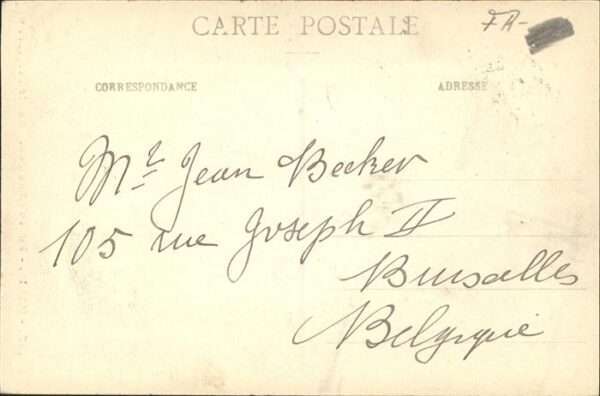 CARTE POSTALE
CORRESPONDANCE
ADRESSE
Mr Jean Becker
105 rue Joseph II
Bruxelles
Belgique